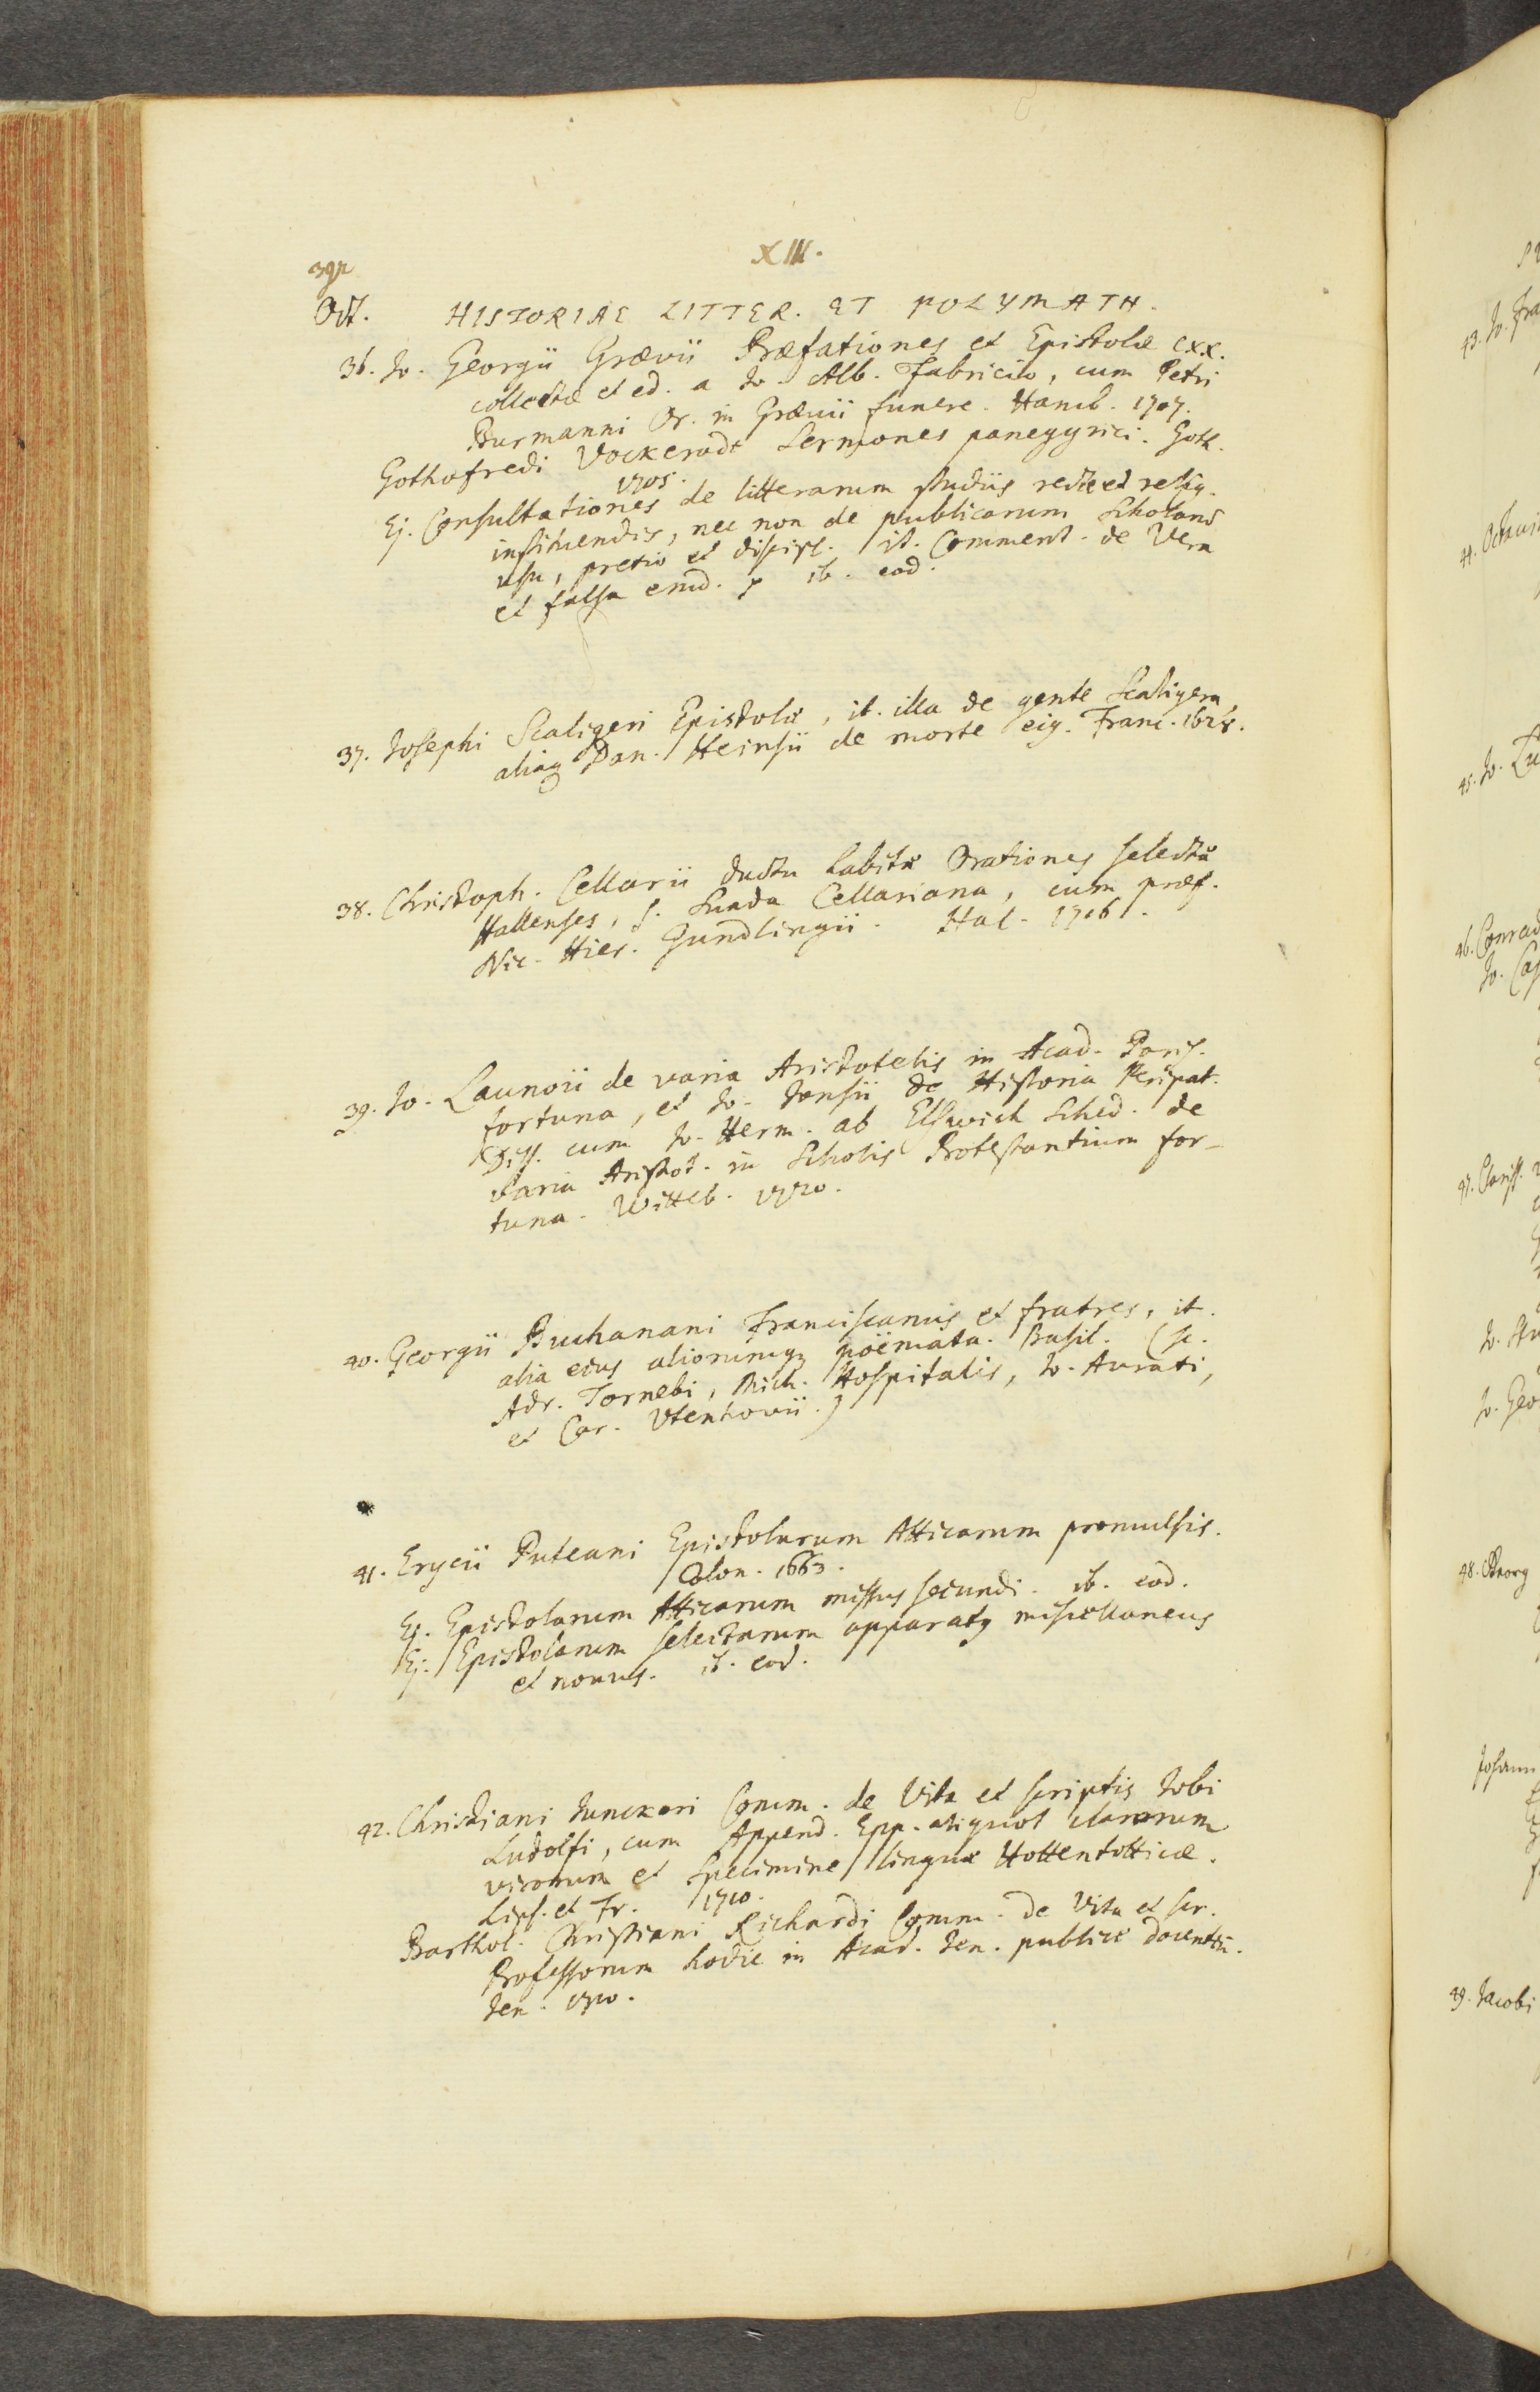 392
XIII.
Oct. HISTORIAE LITTER. ET POLYMATH.
36. Jo. Georgii Grævii Præfationes et Epistolæ CXX.
collectæ et ed. a Jo. Alb. Fabricio, cum Petri
Burmanni Or. in Grævii funere. Hamb. 1707.
Gothofredi Vockerodt Sermones panegyrici. Goth.
1705.
Ej. Consultationes de litterarum studiis recte et relig.
instituendis, nec non de publicarum Scholarũ
usu, pretio et discipl. it. Comment. de Vera
et falsa erud. ib. eod.
37. Josephi Scaligeri Epistolæ, it. illa de gente Scaligera,
aliaq Dan. Heinsii de morte eiq. Franc. 1628.
38. Christoph. Cellarii ductu habitæ Orationes selectæ
Hallenses, s. Suada Cellariana, cum præf.
Nic. Hier. Gundlingii. Hal. 1716.
39. Jo. Launoii de varia Aristotelis in Acad. Paris.
fortuna, et Jo. Jonsii de Historia Peripat.
Diss. cum Jo. Herm. ab Elswich Sched. de
varia Aristot. in Scholis Protestantium for-
tuna. Witteb. 1720.
40. Georgii Buchanani Franciscanus et fratres, it.
alia eius aliorumq poëmata. Basil. (sc.
Adr. Tornebi, Mich. Hospitalis, Jo. Aurati,
et Car. Utenhovii.)
41. Erycii Puteani Epistolarum Atticarum promulsis.
Colon. 1663.
Ej. Epistolarum Atticarum missus secundi. ib. eod.
Ej. Epistolarum selectarum apparatq miscellaneus
et novus. ib. eod.
42. Christiani Junckeri Comm. de Vita et scriptis Jobi
Ludolfi, cum Append. Epp. aliquot clarorum
virorum et Specimine linguæ Hottentotticæ.
Lips. et Fr. 1710.
Barthol. Christiani Richardi Comm. de Vita et scr.
Professorum hodie in Acad. Jen. publice docentiũ.
Jen. 1710.
43. Jo. Fra
44. Octavi
45. Jo.
46. Conrad
Jo. Cas
47. Clariss.
Jo.
Jo. Geo
48. Georg
Johann
49. Jacobi